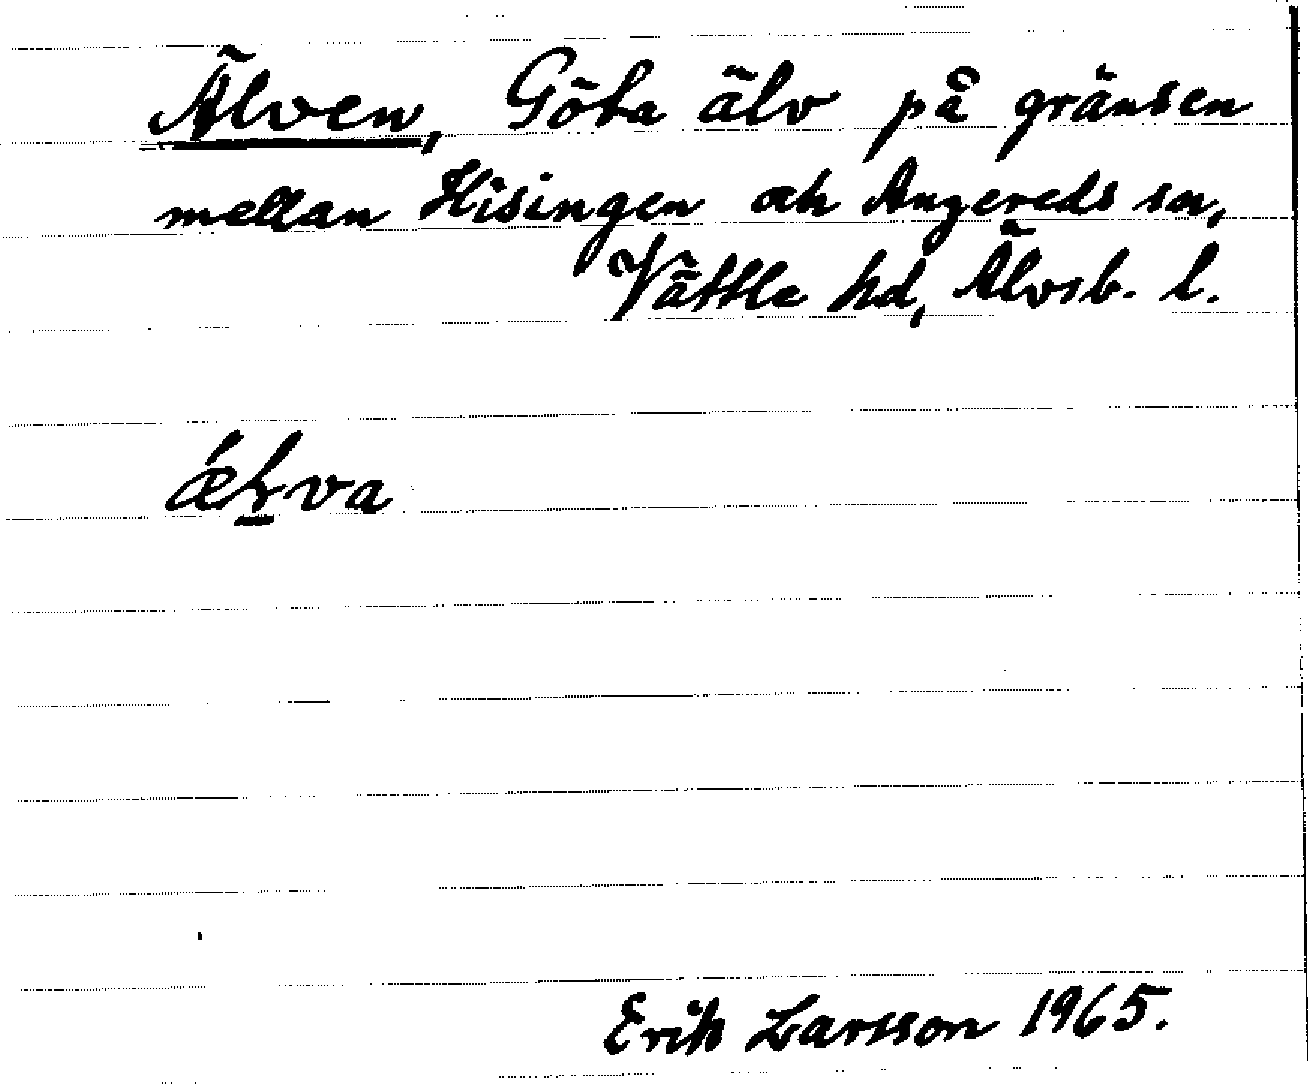 Älven, Göta älv på gränsen
mellan Hisingen och Angereds sn,
Vättle hd, Älvsb. l.
Erik Larsson 1965.